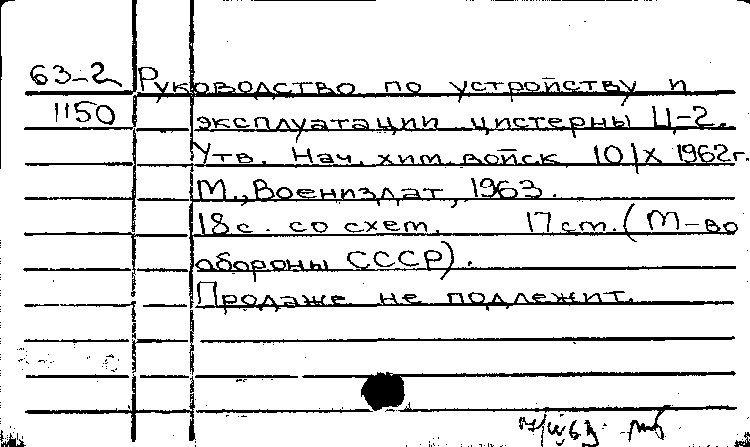 63-2 Руководство по устройству и
1150 эксплуатации цистерны Ц-2.
Утв. Нач. хим. войск 10/X 1962г.
М., Воениздат, 1963.
18с. со схем. 17см. (М-во
обороны СССР).
Продаже не подлежит.